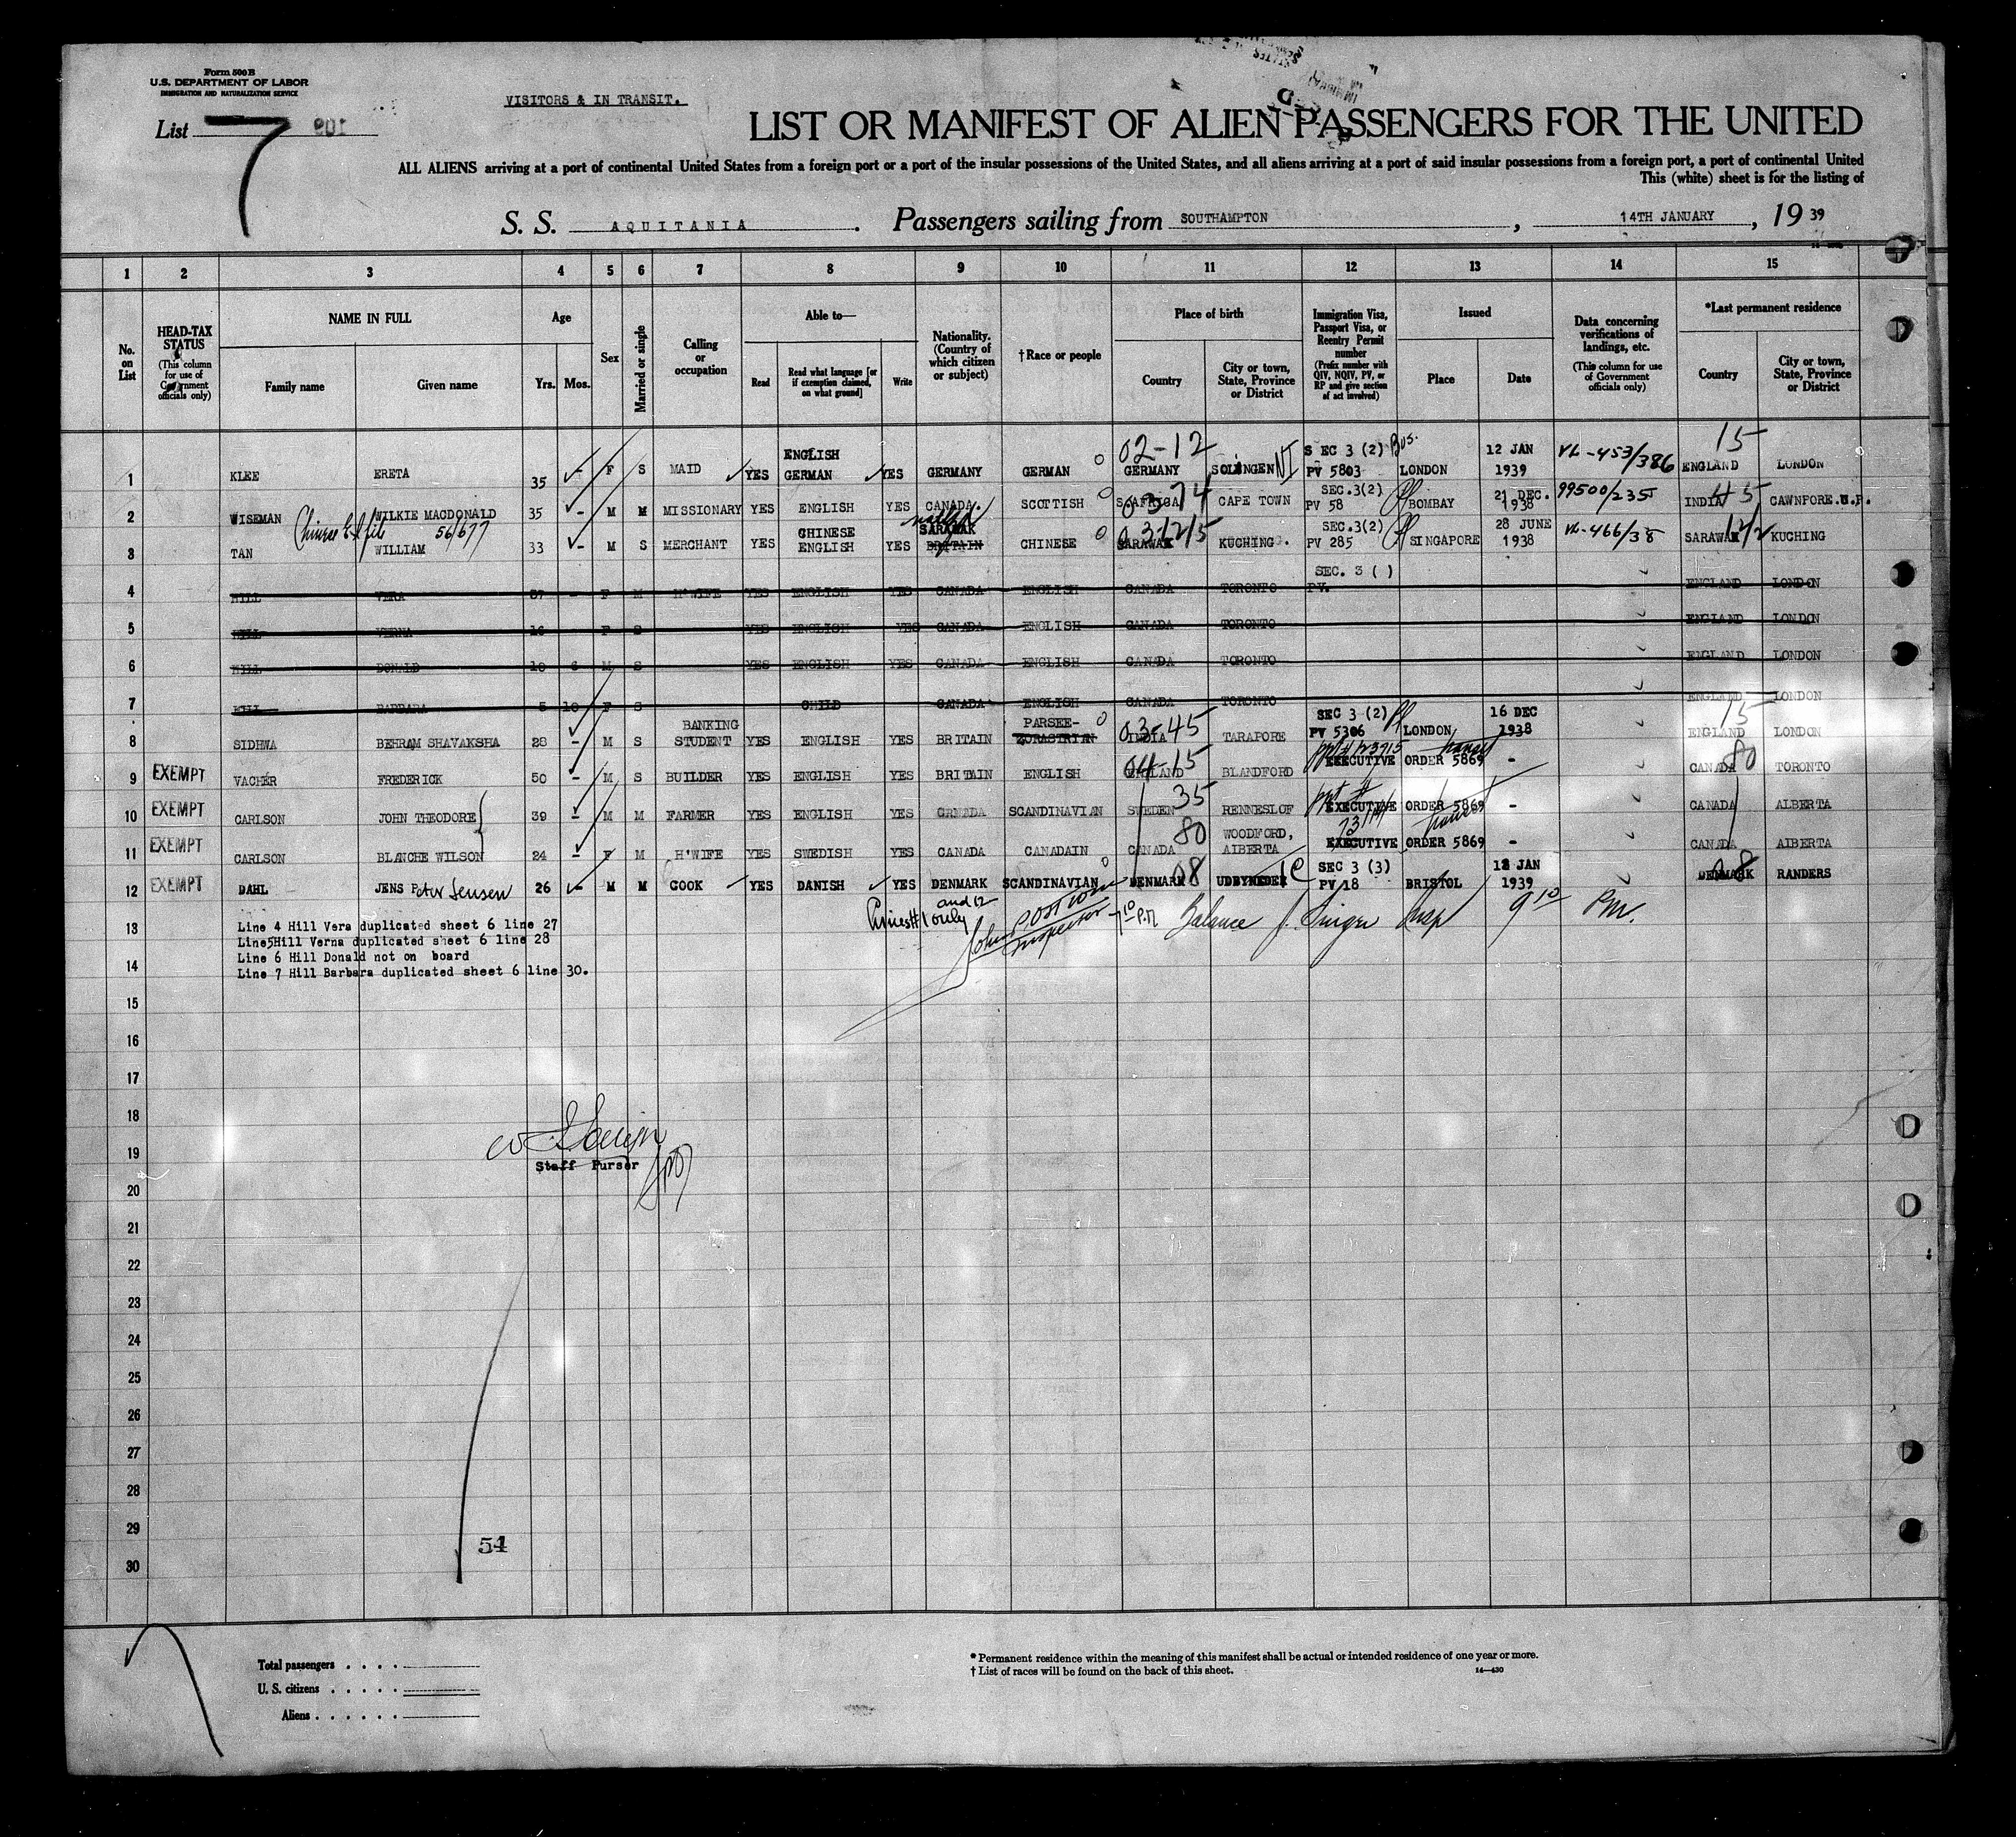 Form 500 B
U.S. DEPARTMENT OF LABOR
IMMIGRATION AND NATURALIZATION SERVICE
VISITORS & IN TRANSIT.
List 7
LIST OR MANIFEST OF ALIEN PASSENGERS FOR THE UNITED
ALL ALIENS arriving at a port of continental United States from a foreign port or a port of the insular possessions of the United States, and all aliens arriving at a port of said insular possessions from a foreign port, a port of continental United
This (white) sheet is for the listing of
S. S. AQUITANIA. Passengers sailing from SOUTHAMPTON, 14TH JANUARY, 19 39
1 2 3 4 5 6 7 8 9 10 11 12 13 14 15
No. on List
HEAD-TAX STATUS (This column for use of Government officials only)
NAME IN FULL Family name Given name
Age Yrs. Mos.
Sex
Married or single
Calling or occupation
Able to— Read Read what language [or if exemption claimed, on what ground] Write
Nationality. (Country of which citizen or subject)
†Race or people
Place of birth Country City or town, State, Province or District
Immigration Visa, Passport Visa, or Reentry Permit number (Prefix number with QIV, NQIV, PV, or RP and give section of act involved)
Issued Place Date
Data concerning verifications of landings, etc. (This column for use of Government officials only)
*Last permanent residence Country City or town, State, Province or District
ENGLISH 02-12 SEC 3 (2) Bus. 12 JAN 15
1 KLEE ERETA 35 - F S MAID YES GERMAN YES GERMANY GERMAN GERMANY SOLINGEN PV 5803 LONDON 1939 VL-453/386 ENGLAND LONDON
SEC.3(2) 21 DEC. 99500/235 45
2 WISEMAN WILKIE MACDONALD 35 - M M MISSIONARY YES ENGLISH YES CANADA. SCOTTISH S.AFRICA 03-74 CAPE TOWN PV 58 BOMBAY 1938 INDIA CAWNPORE.U.P.
Chinese Ex file 56/677 CHINESE SARAWAK SEC.3(2) 28 JUNE
3 TAN WILLIAM 33 - M S MERCHANT YES ENGLISH YES BRITAIN CHINESE SARAWAK KUCHING. PV 285 SINGAPORE 1938 VL-466/38 SARAWAK KUCHING
SEC. 3 ( )
4 HILL VERA 37 - F M H'WIFE YES ENGLISH YES CANADA ENGLISH CANADA TORONTO PV. ENGLAND LONDON
5 HILL VERNA 16 F S YES ENGLISH YES CANADA ENGLISH CANADA TORONTO ENGLAND LONDON
6 HILL DONALD 10 6 M S YES ENGLISH YES CANADA ENGLISH CANADA TORONTO ENGLAND LONDON
7 HILL BARBARA 5 10 F S CHILD CANADA ENGLISH CANADA TORONTO ENGLAND LONDON
BANKING PARSEE- 03-45 SEC 3 (2) 16 DEC 15
8 SIDHWA BEHRAM SHAVAKSHA 28 - M S STUDENT YES ENGLISH YES BRITAIN ZORASTRIAN INDIA TARAPORE PV 5306 LONDON 1938 ENGLAND LONDON
9 EXEMPT VACHER FREDERICK 50 - M S BUILDER YES ENGLISH YES BRITAIN ENGLISH ENGLAND 04-15 BLANDFORD EXECUTIVE ORDER 5869 - CANADA 80 TORONTO
10 EXEMPT CARLSON JOHN THEODORE 39 - M M FARMER YES ENGLISH YES CANADA SCANDINAVIAN SWEDEN 35 RENNESLOF EXECUTIVE ORDER 5869 - CANADA ALBERTA
80 WOODFORD,
11 EXEMPT CARLSON BLANCHE WILSON 24 - F M H'WIFE YES SWEDISH YES CANADA CANADAIN CANADA AIBERTA EXECUTIVE ORDER 5869 - CANADA AIBERTA
SEC 3 (3) 12 JAN
12 EXEMPT DAHL JENS Peter Jensen 26 - M M COOK YES DANISH YES DENMARK SCANDINAVIAN DENMARK 08 UDBYNEDER PV 18 BRISTOL 1939 DENMARK 08 RANDERS
and 12
Lines #1 only Inspector 7 10 P.M. Balance J. Singer Insp 9 10 P.M.
13 Line 4 Hill Vera duplicated sheet 6 line 27
Line5Hill Verna duplicated sheet 6 line 28
Line 6 Hill Donald not on board
14 Line 7 Hill Barbara duplicated sheet 6 line 30.
15
16
17
18
19
Staff Purser
20
21
22
23
24
25
26
27
28
29
54
30
Total passengers . . . .
U. S. citizens . . . . .
Aliens . . . . . .
* Permanent residence within the meaning of this manifest shall be actual or intended residence of one year or more.
† List of races will be found on the back of this sheet.
14—430